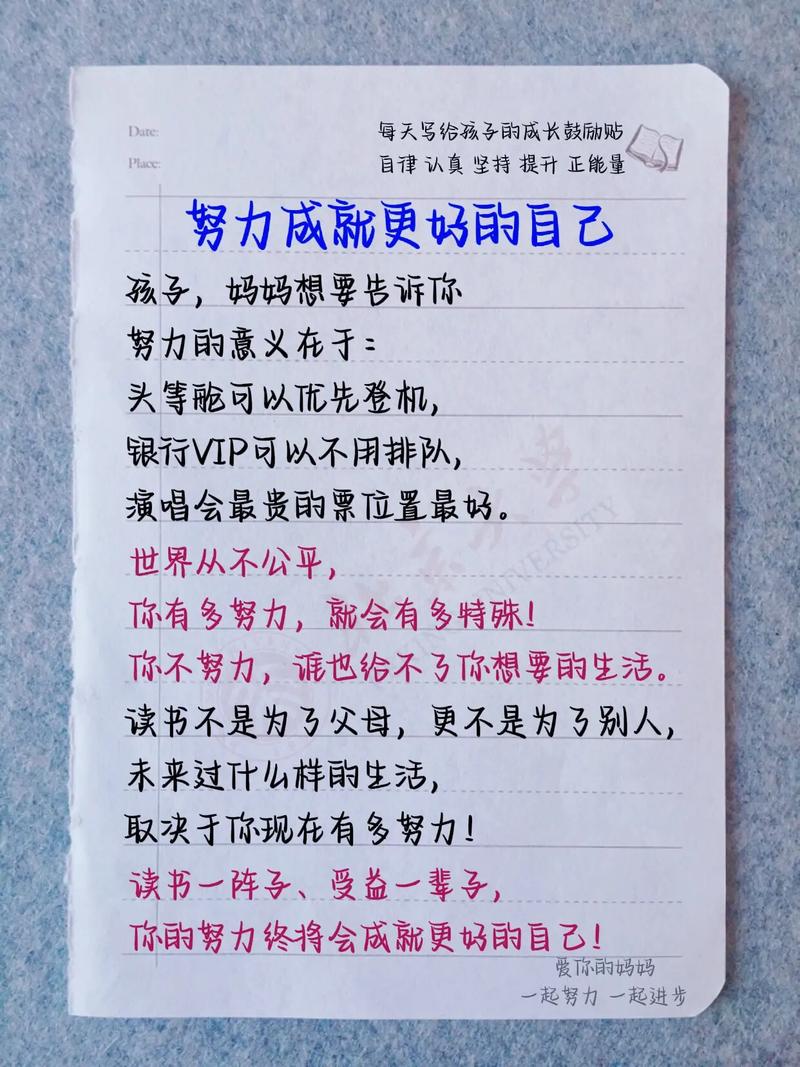 Date:
每天写给孩子的成长鼓励贴
Place:
自律 认真 坚持 提升 正能量
努力成就更好的自己
孩子，妈妈想要告诉你
努力的意义在于：
头等舱可以优先登机，
银行VIP可以不用排队，
演唱会最贵的票位置最好。
世界从不公平，
你有多努力，就会有多特殊！
你不努力，谁也给不了你想要的生活。
读书不是为了父母，更不是为了别人，
未来过什么样的生活，
取决于你现在有多努力！
读书一阵子、受益一辈子，
你的努力终将会成就更好的自己！
爱你的妈妈
一起努力 一起进步
UNIVERSITY